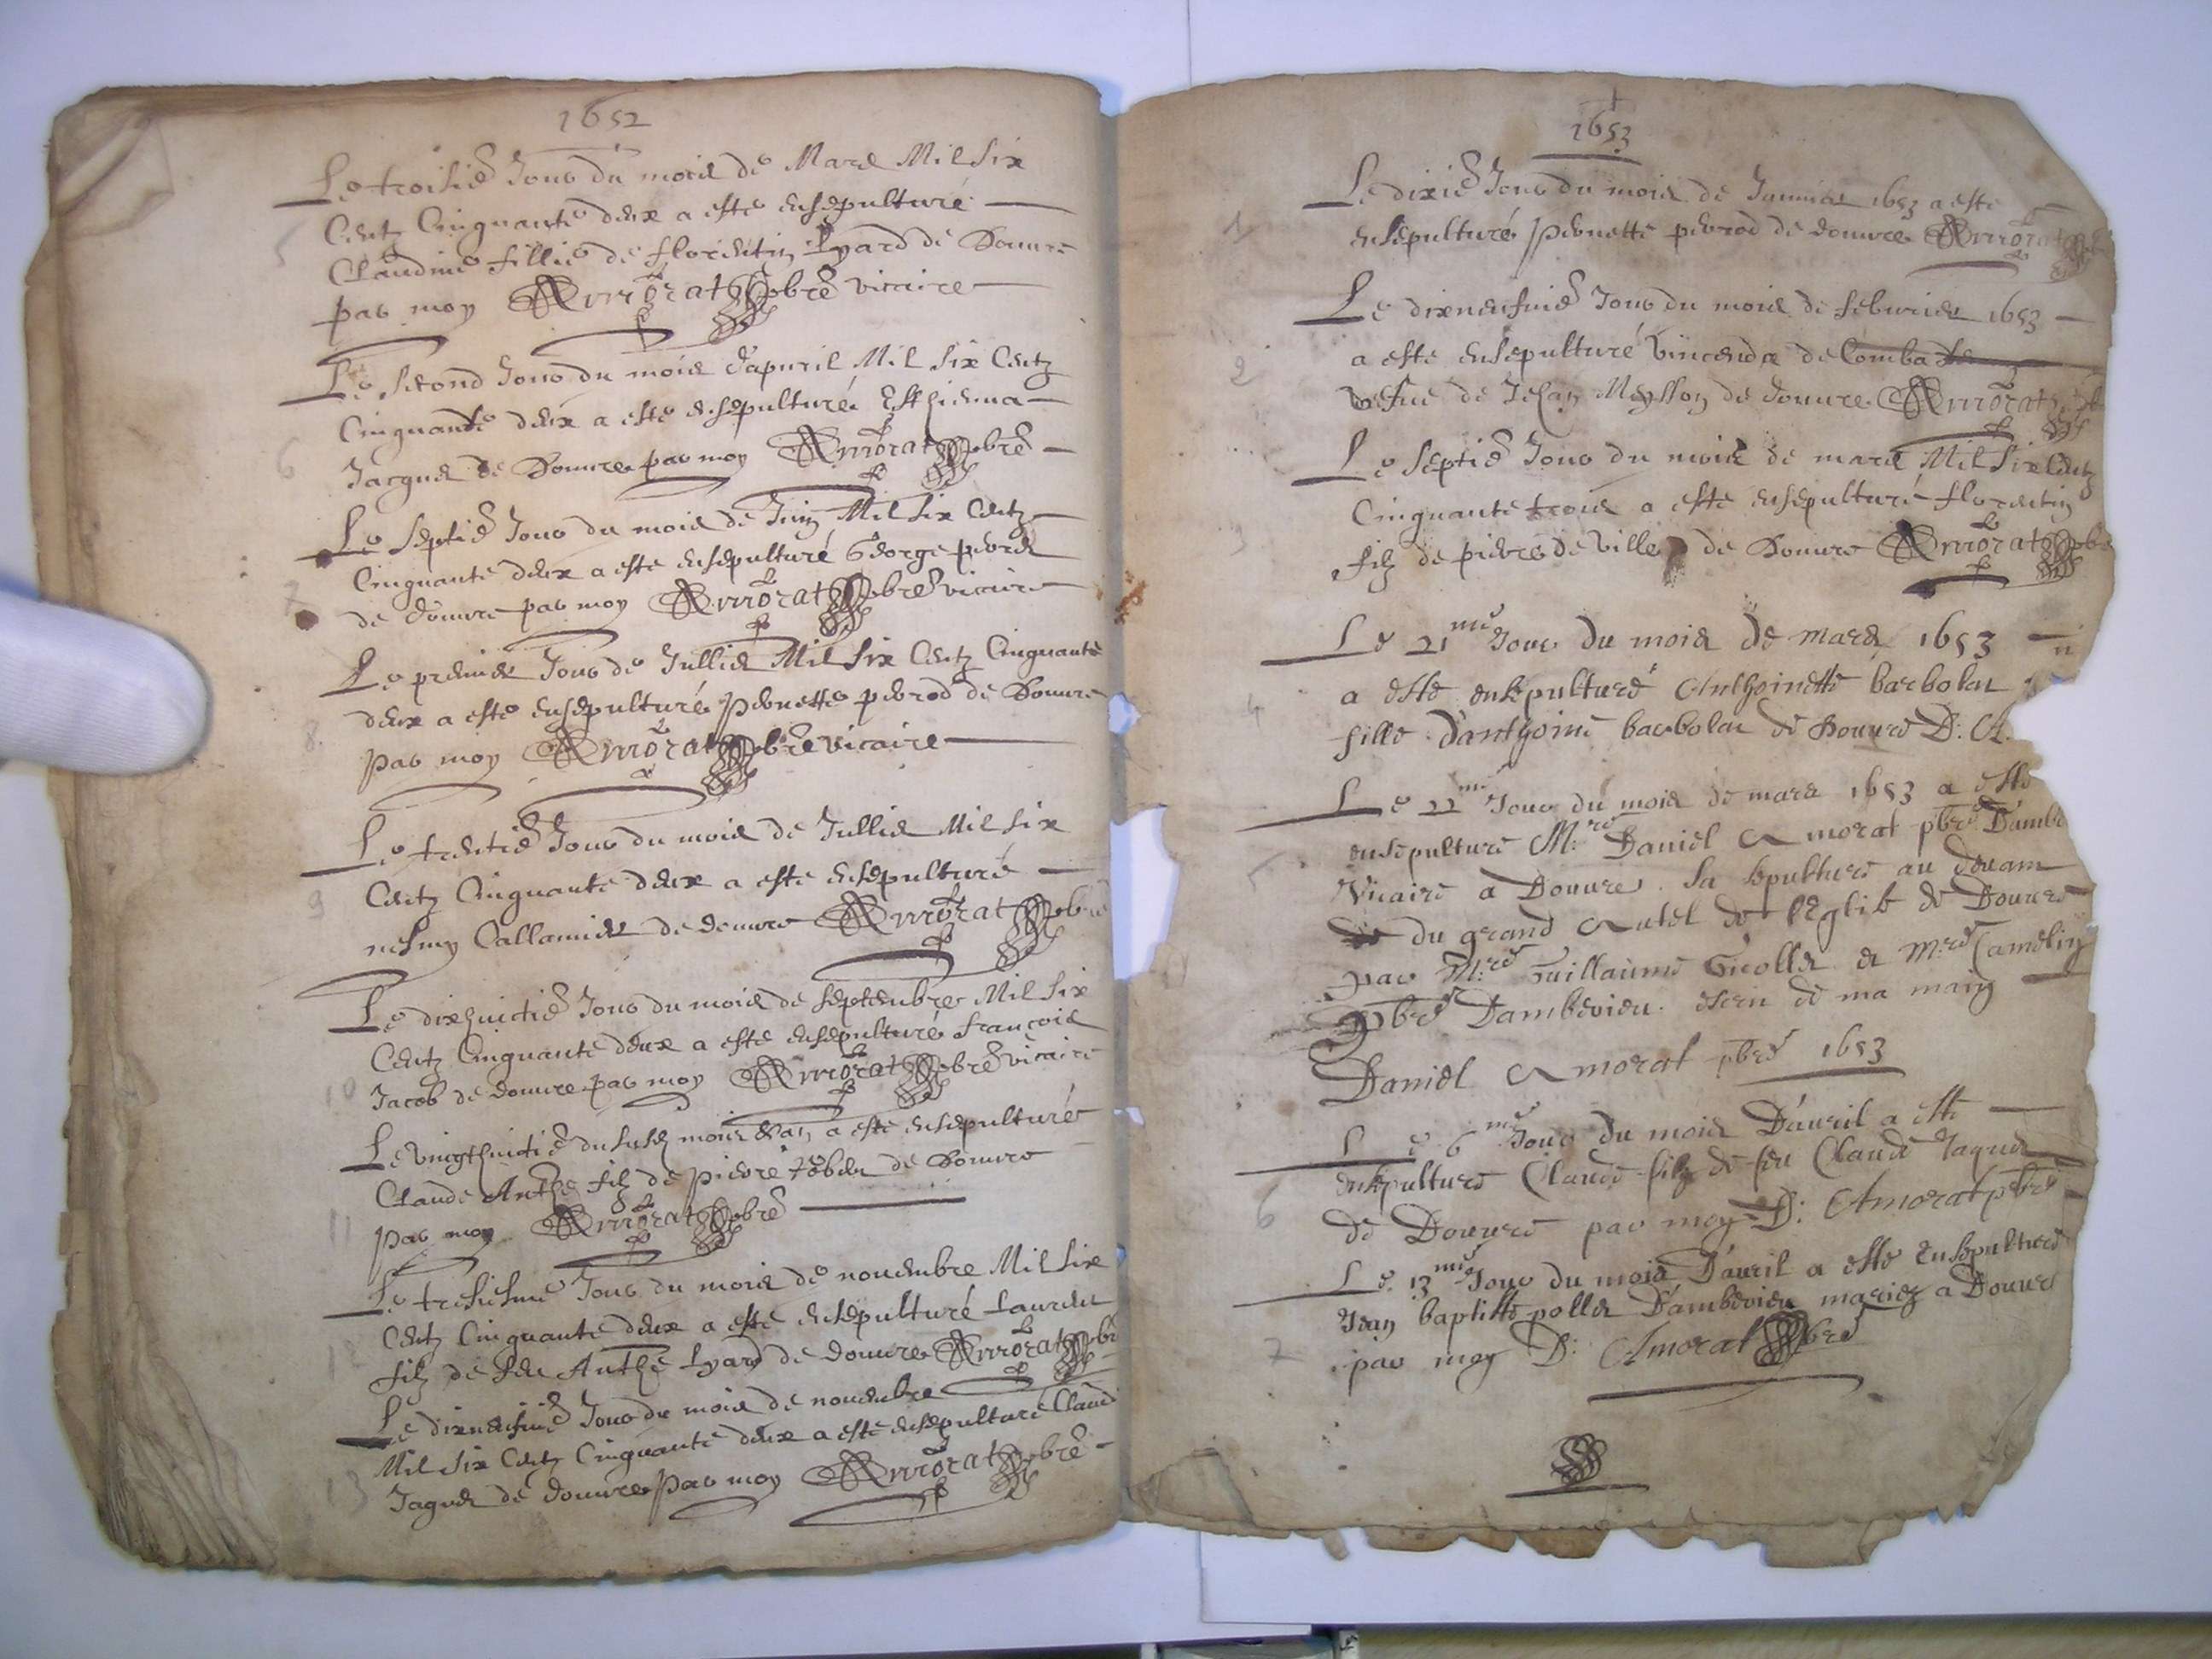 1652
Le troisie Jour du moid de Mard Mil six
5
Centz Cinquante deux a este ensepulturé
Claudine fillie de florentin Lyard de Douure
par moy Amorat pbre vicaire
Le second Jour du moid d'apuril Mil six Centz
Cinquante deux a este ensepulturé Esthienna
6
Jacques de Douure par moy Amorat pbre
Le septie Jour du moid de Juin Mil six Centz
Cinquante deux a este ensepulturé George
7
de douure par moy Amorat pbre vicaire
Le premier Jour de Jullied Mil six Centz Cinquante
deux a este ensepulturé Pernette perrod de Douure
8
par moy Amorat pbre vicaire
Le trentie Jour du moid de Jullied Mil six
Centz Cinquante deux a este ensepulturé
9
Callamied de douure Amorat pbre
Le dixhuictie Jour du moid de septembre Mil six
Centz Cinquante deux a este ensepulturé françoid
10
Jacob de douure par moy Amorat pbre vicaire
Le vingthuitie du susd moid & an a este ensepulturé
Claude Anthe filz de pierre de Douure
11
par moy Amorat pbre
Le tresiesme Jour du moid de nouembre Mil six
Centz Cinquante deux a este ensepulturé Laurent
12
filz de feu Anthe Lyard de douure Amorat pbr
Le dixneufuie Jour du moid de nouembre
Mil six Centz Cinquante deux a este ensepulturé Claud
13
Jaqued de douure par moy Amorat pbre
1653
Le dixie Jour du moid de Januier 1653 a este
1
ensepulturé Pernette perrod de douure Amorat
Le dixneufuie Jour du moid de feburier 1653
2
a este ensepulturé Vincenda de Comba
vefue de Jehan Meysson de douure Amorat
Le septie Jour du moid de mard Mil six Centz
Cinquante troid a este ensepulturé florentin
3
filz de pierre de Ville de Douure Amorat pbr
Le 21me Jour du moid de mard 1653
4
a esté ensepulturé Anthoinette barbolat
fille d'anthoine barbolat de Douure D. A.
Le 22me Jour du moid de mard 1653 a esté
5
ensepulturé Mre Daniel Amorat pbre D'ambr
Vicaire a Douure. sa sepulture au deuam
du grand Autel de l'Eglise de Douure
par Mre Guillaume Gicolled et Mre Camelin
pbre D'ambérieu. escrit de ma main
Daniel Amorat pbre 1653
Le 6me Jour du moid D'auril a esté
ensepulturé Claude filz de feu Claude Jaqued
6
de Douure par moy D: Amorat pbre
Le 13me Jour du moid D'auril a esté ensepulturé
Jean baptiste polled D'ambérieu mariez a Douure
7
par moy D: Amorat pbre